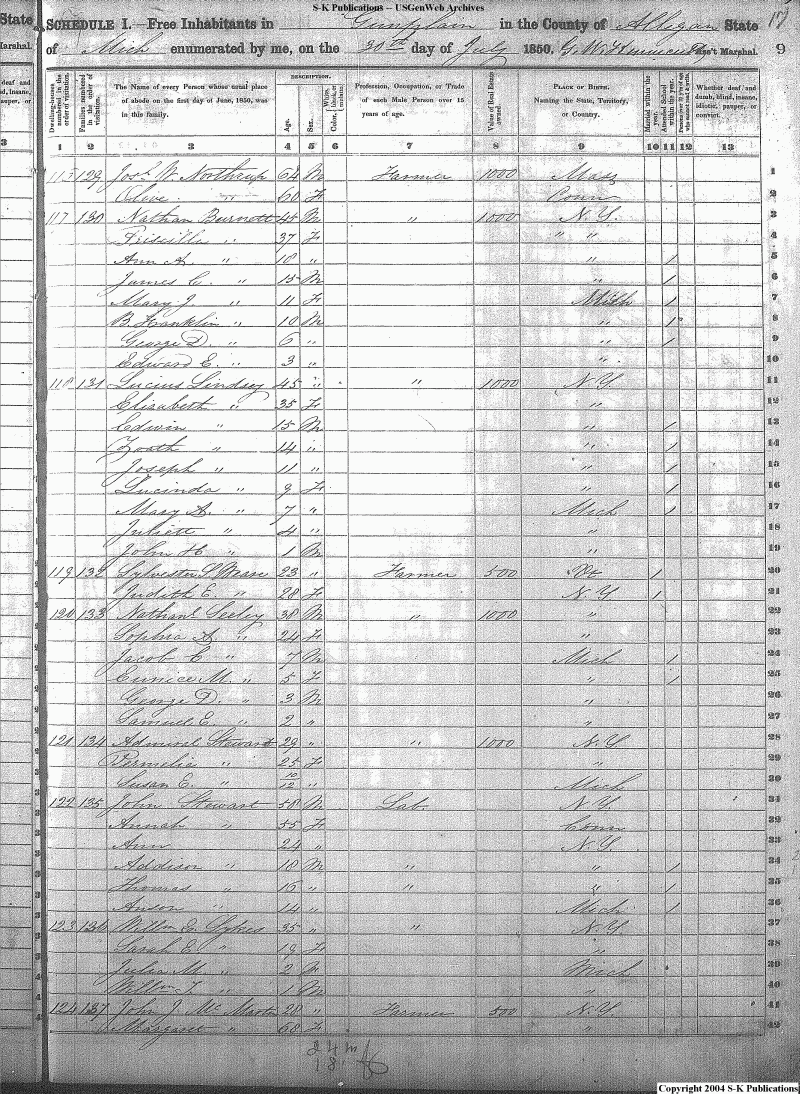 S-K Publications – USGenWeb Archives
SCHEDULE I.–Free Inhabitants in Gunplain in the County of Allegan State 17
of Mich enumerated by me, on the 20th day of July 1850. Ass't Marshal. 9
State
Marshal.
deaf and
d, insane,
auper, or
3
Dwelling-houses numbered in the order of visitation.
Families numbered in the order of visitation.
The Name of every Person whose usual place of abode on the first day of June, 1850, was in this family.
DESCRIPTION.
Age.
Sex.
Color, White, black, or mulatto.
Profession, Occupation, or Trade of each Male Person over 15 years of age.
Value of Real Estate owned.
PLACE OF BIRTH. Naming the State, Territory, or Country.
Married within the year.
Attended School within the year.
Persons over 20 y'rs of age who cannot read & write.
Whether deaf and dumb, blind, insane, idiotic, pauper, or convict.
1 2 3 4 5 6 7 8 9 10 11 12 13
115 129 Jos. W. Northrup 64 M Farmer 1000 Mass 1
Olive " 60 F Conn 2
117 130 Nathan Burnett 45 M " 1000 N.Y. 3
Priscilla " 37 F " " 4
Ann A. " 18 " " 1 5
James C. " 15 M " 1 6
Mary J. " 11 F Mich 1 7
B. Franklin " 10 M " 1 8
George D. " 6 " " 1 9
Edward E. " 3 " " 10
118 131 Lucius Lindsey 45 " " 1000 N.Y. 11
Elizabeth " 35 F " 12
Edwin " 15 M " 1 13
Zoath " 14 " " 1 14
Joseph " 11 " " 1 15
Lucinda " 9 F " 1 16
Mary A. " 7 " Mich 1 17
Juliett " 4 " " 18
John H " 1 M " 19
119 132 Sylvester 23 " Farmer 500 Vt 1 20
Judith E. " 28 F N.Y. 1 21
120 133 Nathanl Seeley 38 M " 1000 " 22
Sophia A " 24 F " 23
Jacob E " 7 M Mich 1 24
Eunice M. " 5 F " 1 25
George D. " 3 M " 26
Samuel E. " 2 " " 27
121 134 Admiral Stewart 29 " " 1000 N.Y 28
Permelia " 25 F " 29
Susan E. " 10/12 " Mich 30
122 135 John Stewart 58 M Lab. N.Y. 31
Annah " 55 F Conn 32
Ann 24 " N.Y. 33
Addison " 18 M " " 1 34
Thomas " 15 " " " 1 35
Anson " 14 " Mich 1 36
123 136 Willm E. Sykes 35 " " N.Y. 37
Sarah E. " 19 F " 38
Julia M. " 2 F Mich 39
Willm T. " 1 M " 40
124 137 John J. McMartin 28 " Farmer 500 N.Y 41
Margaret " 68 F " 42
24 m
18 f
Copyright 2004 S-K Publications